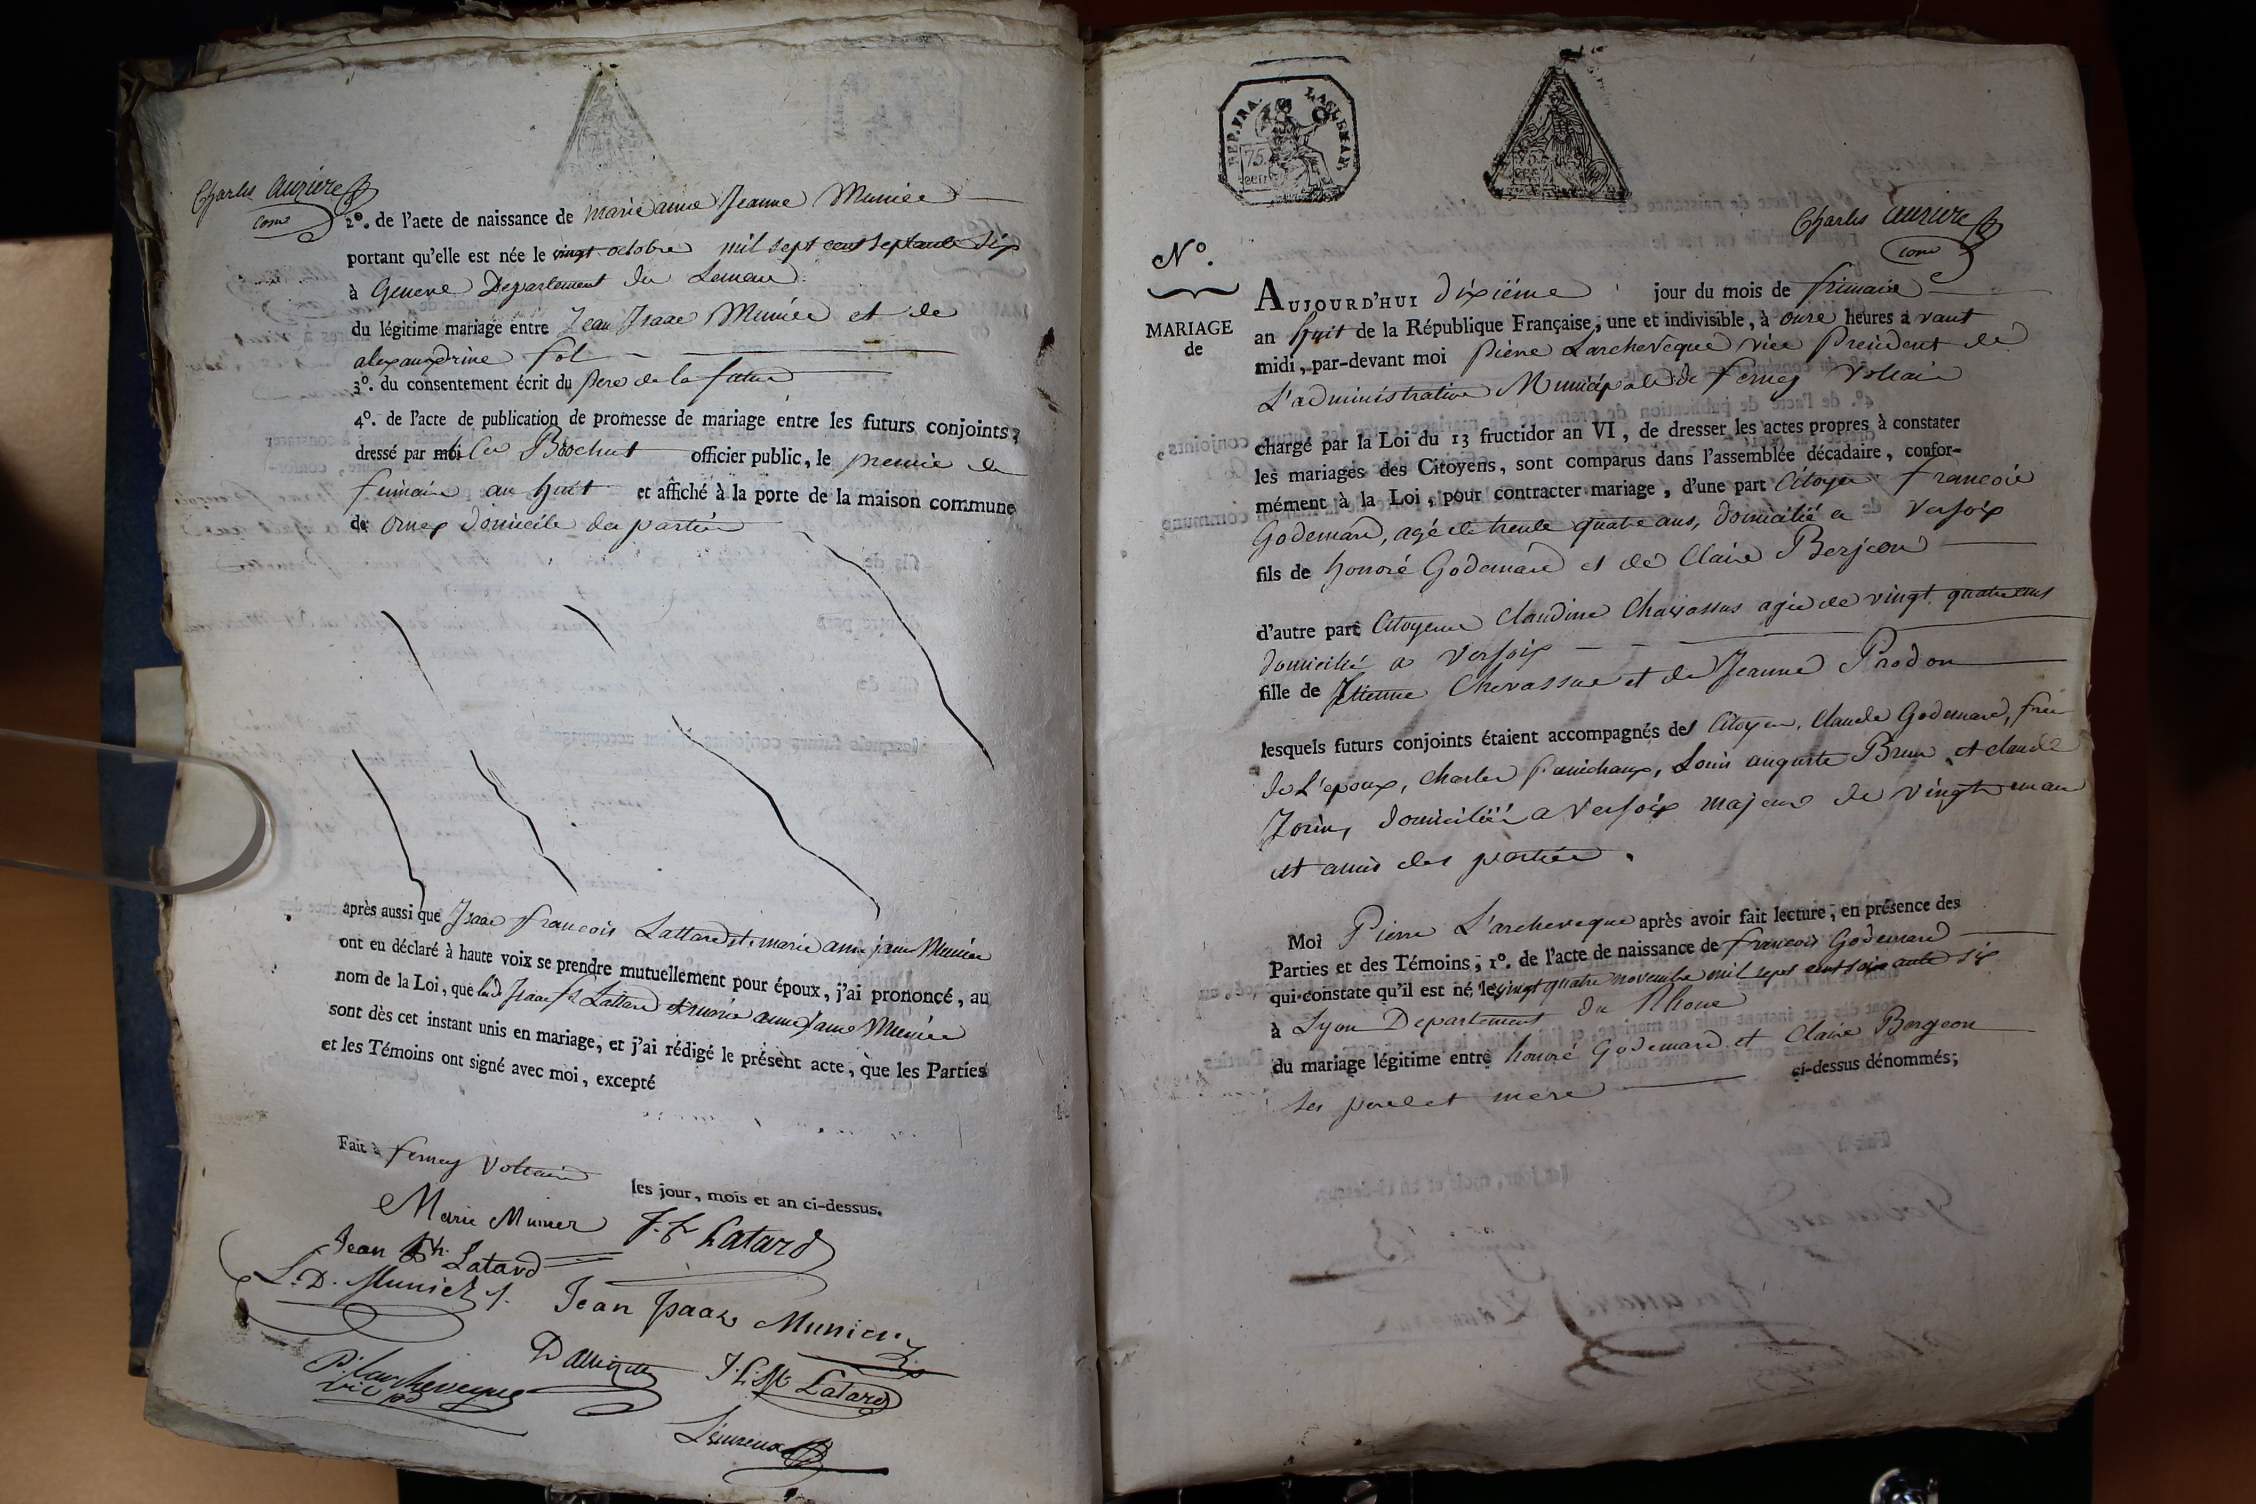 Charles auziere
com
2°. de l'acte de naissance de marie anne Jeanne Muniée
portant qu'elle est née le vingt octobre mil sept cent septante six
à Geneve Departement du Leman
du légitime mariage entre Jean Isaac Muniée et de
alexandrine fol
3°. du consentement écrit du pere de la future
4°. de l'acte de publication de promesse de mariage entre les futurs conjoints,
dressé par moi officier public, le premie de
frimaire an huit et affiché à la porte de la maison commune
de ornex domicile des parties
après aussi que Isaac francois Lattard et marie anne jeanne Muniée
ont eu déclaré à haute voix se prendre mutuellement pour époux, j'ai prononcé, au
nom de la Loi, que Isaac fs Lattard et marie anne jeanne Muniée
sont dès cet instant unis en mariage, et j'ai rédigé le présent acte, que les Parties
et les Témoins ont signé avec moi, excepté
Fait à ferney Voltaire
les jour, mois et an ci-dessus.
Marie Munier J. fr Latard
Jean Latard
L. D. Munier
Jean Isaac Munier
P. Larcheveque
vice pdt
Latard
REP. FRA.
75.
cent
Charles auziere
com
N°.
MARIAGE
de
AUJOURD'HUI dixiéme jour du mois de frimaire
an huit de la République Française, une et indivisible, à onze heures avant
midi, par-devant moi pierre Larcheveque vice President de
L'administration Municipale de ferney Voltaire
chargé par la Loi du 13 fructidor an VI, de dresser les actes propres à constater
les mariages des Citoyens, sont comparus dans l'assemblée décadaire, confor-
mément à la Loi, pour contracter mariage, d'une part Citoyen francois
Godemard, agé de trente quatre ans, domicilié a Versoix
fils de honoré Godemard et de Claire Berjeon
d'autre part Citoyenne Claudine Chavassus agée de vingt quatre ans
domicilié a Versoix
fille de Etienne Chevassue et de Jeanne Prodon
lesquels futurs conjoints étaient accompagnés des Citoyen. Claude Godemard, frere
de L'epoux, Charles Louis auguste Brun et claude
domiciliés a Versoix majeurs de vingt un ans
et amis des parties.
Moi Pierre L'archeveque après avoir fait lecture, en présence des
Parties et des Témoins, 1°. de l'acte de naissance de francois Godemard
qui constate qu'il est né le vingt quatre novembre mil sept cent soixante six
à Lyon Departement du Rhone
du mariage légitime entre honoré Godemard et Claire Bergeon
ses pere et mere ci-dessus dénommés;